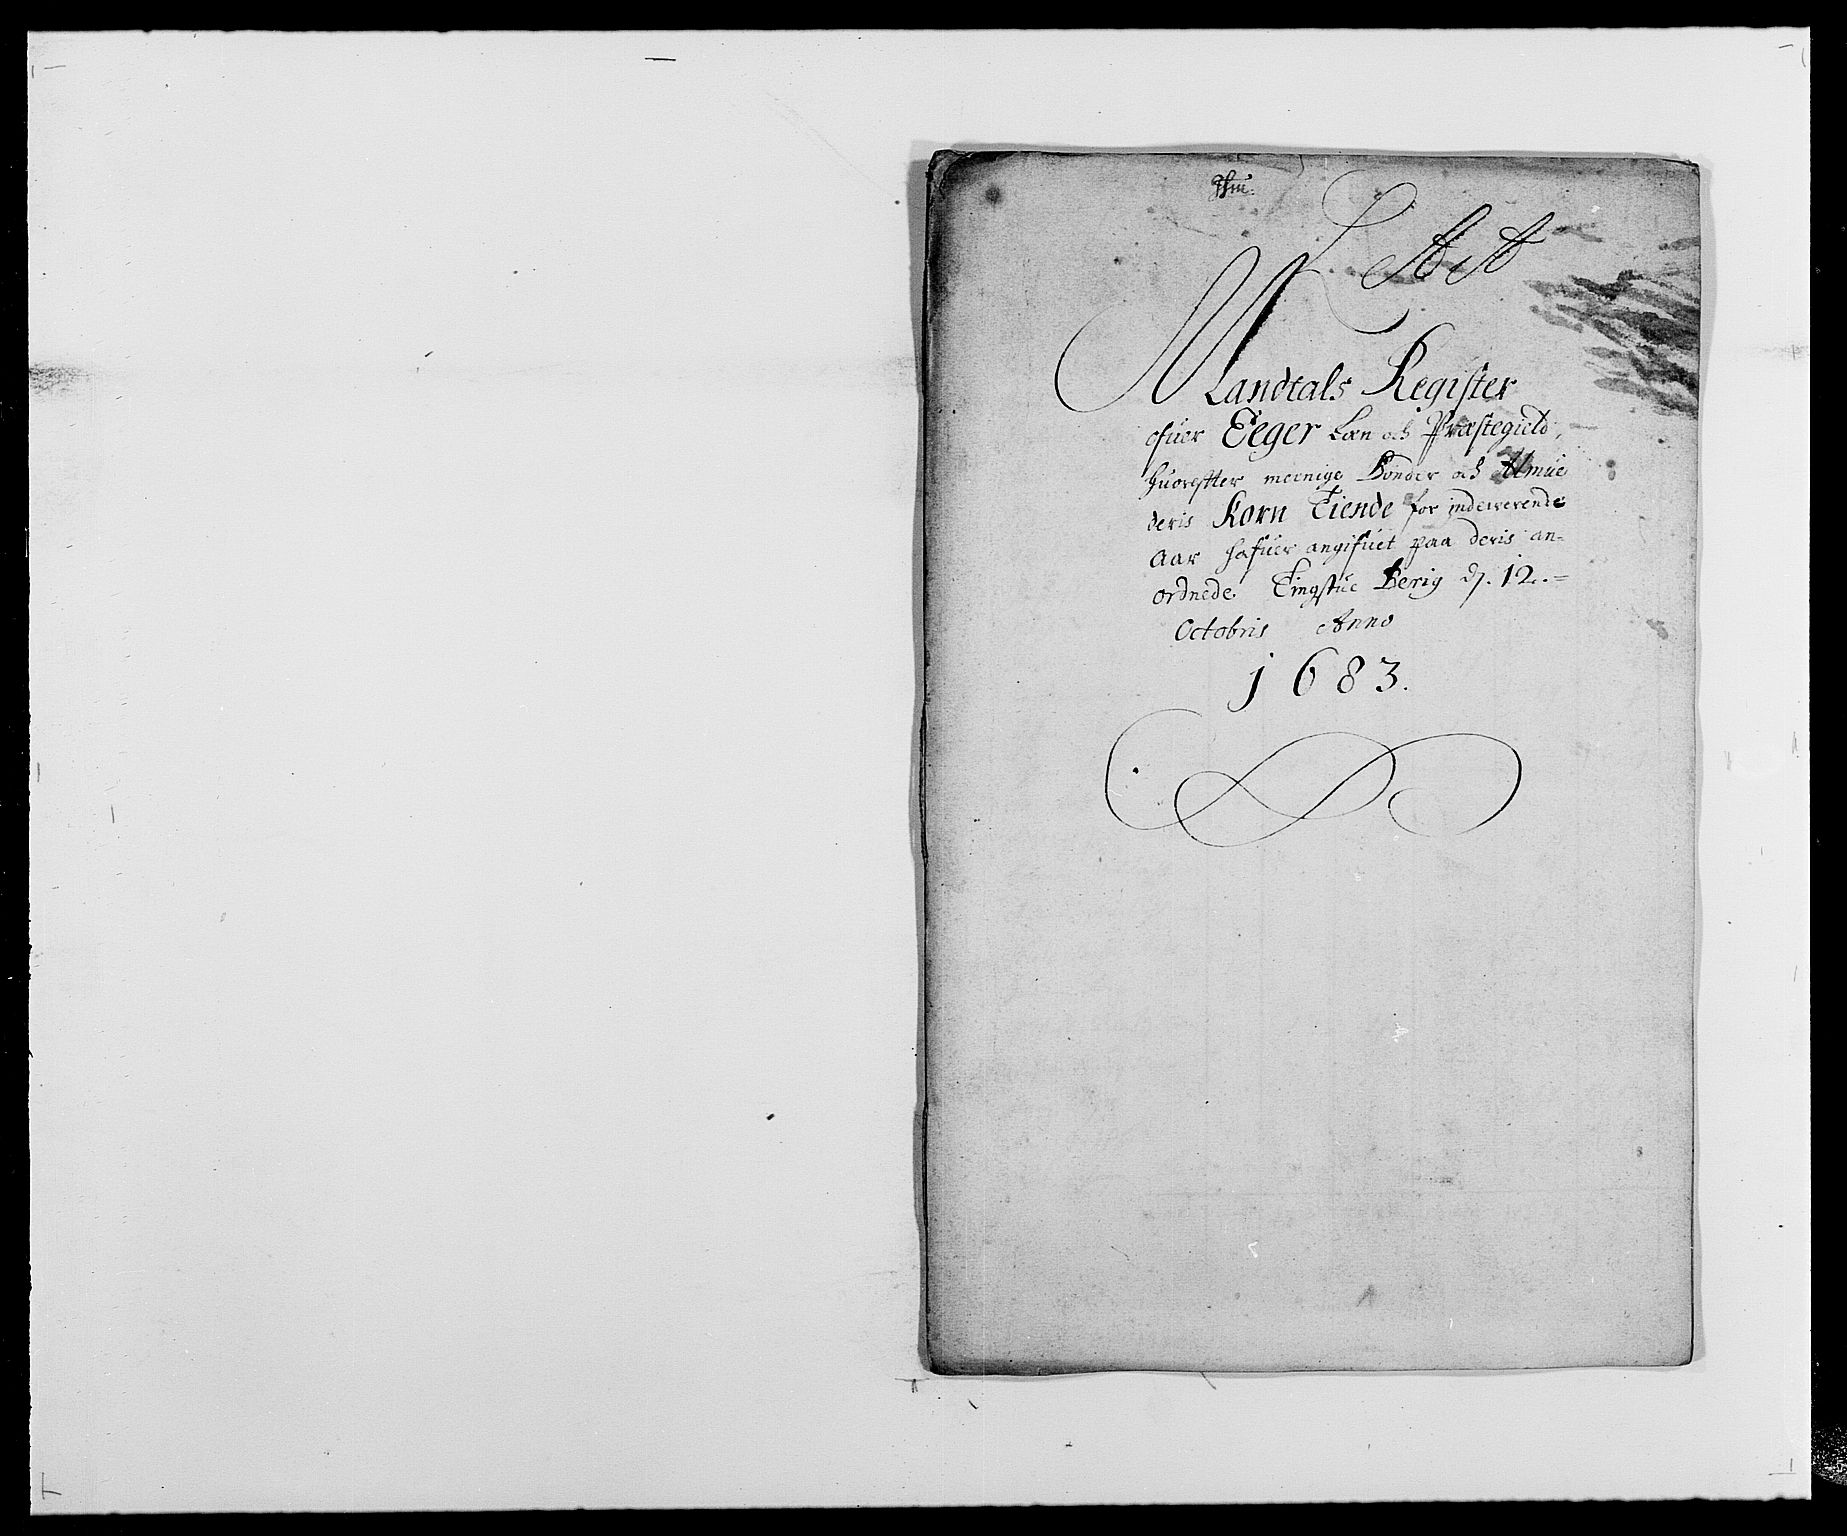 L AA
Mandtals Register
ofuer Eeger Læn och Præstegield,
huorefter meenige Bønder och Almue
deris Korn Tiende for indewerende
Aar hafuer angifuet paa deris an-
ordnede Tingstue Berig d. 12.
Octobris Anno
1683.